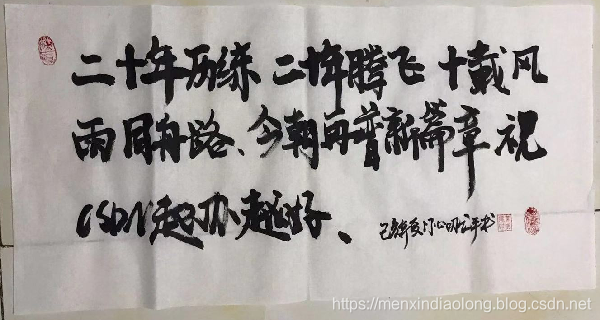 二十年历练 二十年腾飞 十载风
雨同舟路、今朝再普新篇章 祝
CSDN越办越好、
己亥年夏门心
https://menxindiaolong.blog.csdn.net